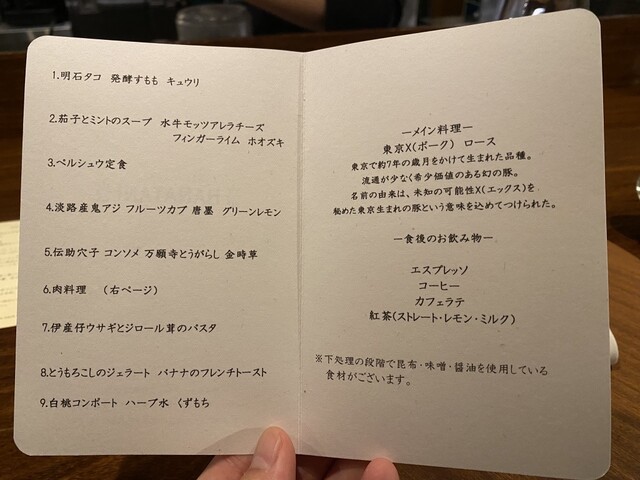 1.明石タコ 発酵すもも キュウリ
2.茄子とミントのスープ 水牛モッツアレラチーズ
フィンガーライム ホオズキ
3.ペルシュウ定食
4.淡路産鬼アジ フルーツカブ 唐墨 グリーンレモン
5.伝助穴子 コンソメ 万願寺とうがらし 金時草
6.肉料理 (右ページ)
7.伊産仔ウサギとジロール茸のパスタ
8.とうもろこしのジェラート バナナのフレンチトースト
9.白桃コンポート ハーブ水 くずもち
ーメイン料理ー
東京X(ポーク) ロース
東京で約7年の歳月をかけて生まれた品種。
流通が少なく希少価値のある幻の豚。
名前の由来は、未知の可能性X(エックス)を
秘めた東京生まれの豚という意味を込めてつけられた。
ー食後のお飲み物ー
エスプレッソ
コーヒー
カフェラテ
紅茶(ストレート・レモン・ミルク)
※下処理の段階で昆布・味噌・醤油を使用している
食材がございます。